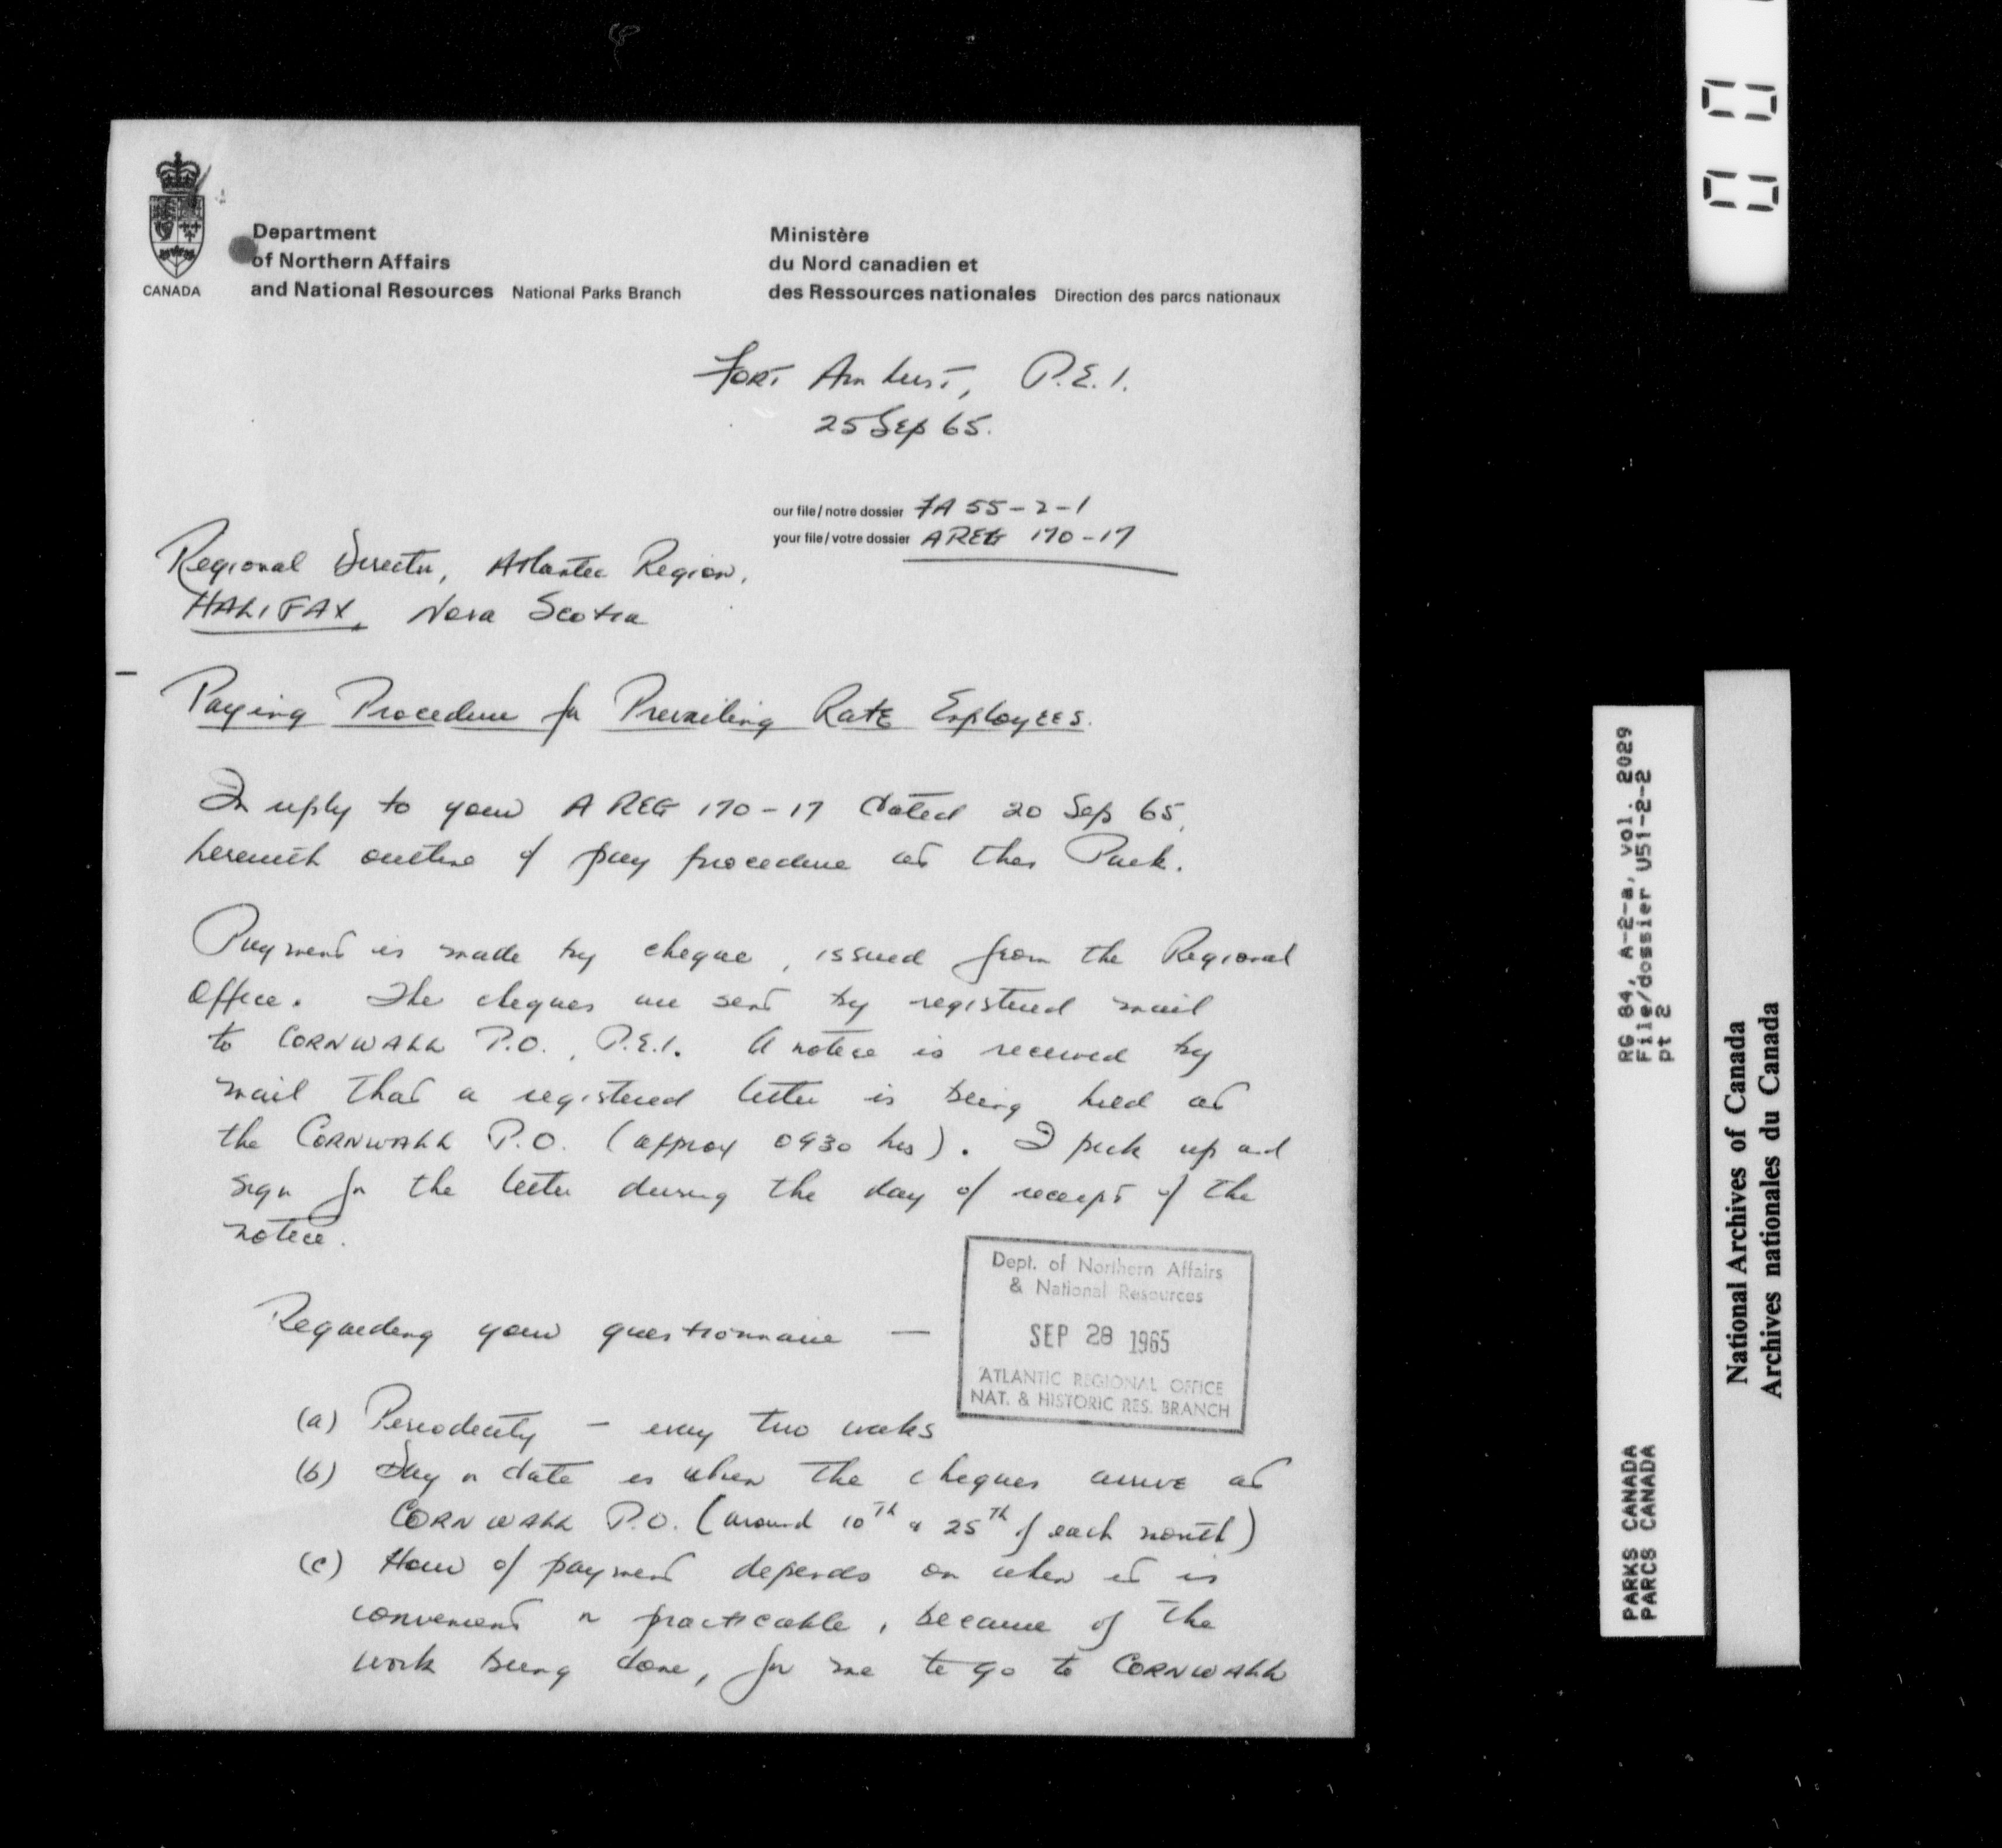 CANADA
Department
of Northern Affairs
and National Resources National Parks Branch
Ministère
du Nord canadien et
des Ressources nationales Direction des parcs nationaux
Fort Amherst, P.E.I.
25 Sep 65.
our file/notre dossier FA 55-2-1
your file/votre dossier AREG 170-17
Regional Director, Atlantic Region,
HALIFAX, Nova Scotia
Paying Procedure for Prevailing Rate Employees.
In reply to your AREG 170-17 dated 20 Sep 65,
herewith outline of pay procedure at this Park.
Payment is made by cheque, issued from the Regional
Office. The cheques are sent by registered mail
to CORNWALL P.O., P.E.I. A notice is received by
mail that a registered letter is being held at
the CORNWALL P.O. (approx 0930 hrs). I pick up and
sign for the letter during the day of receipt of the
notice.
Regarding your questionnaire —
Dept. of Northern Affairs
& National Resources
SEP 28 1965
ATLANTIC REGIONAL OFFICE
NAT. & HISTORIC RES. BRANCH
(a) Periodicity - every two weeks
(b) Day or date is when the cheques arrive at
CORNWALL P.O. (around 10th & 25th of each month)
(c) Hour of payment depends on when it is
convenient or practicable, because of the
work being done, for me to go to CORNWALL
RG 84, A-2-a, vol. 2029
File/dossier U51-2-2
pt 2
PARKS CANADA
PARCS CANADA
National Archives of Canada
Archives nationales du Canada